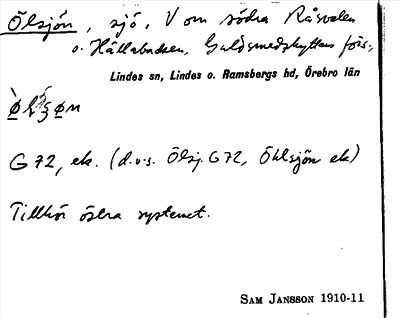 Ölsjön, sjö, V om södra Råsvalen
o. Hällabacken, Guldsmedshyttans förs.,
Lindes sn, Lindes o. Ramsbergs hd, Örebro län
G 72, ek. (d.v.s. Ölsj. G 72, Öhlsjön ek)
Tillhör östra systemet.
SAM JANSSON 1910-11